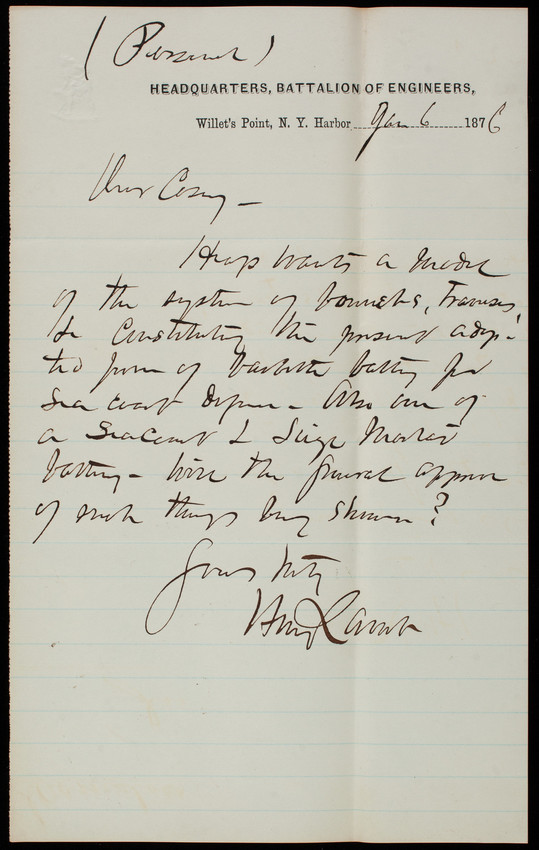 (Personal)
HEADQUARTERS, BATTALION OF ENGINEERS,
Willet's Point, N. Y. Harbor Jan 6 1876
Dear Casey –
Heap wants a model
of the system of bonnets, traverses,
&c constituting the present adop-
ted form of barbette battery for
sea coast defense – Also one of
a Seacoast & Siege Mortar
battery – Will the General approve
of such things being shown?
Yours truly
Henry L. Abbot